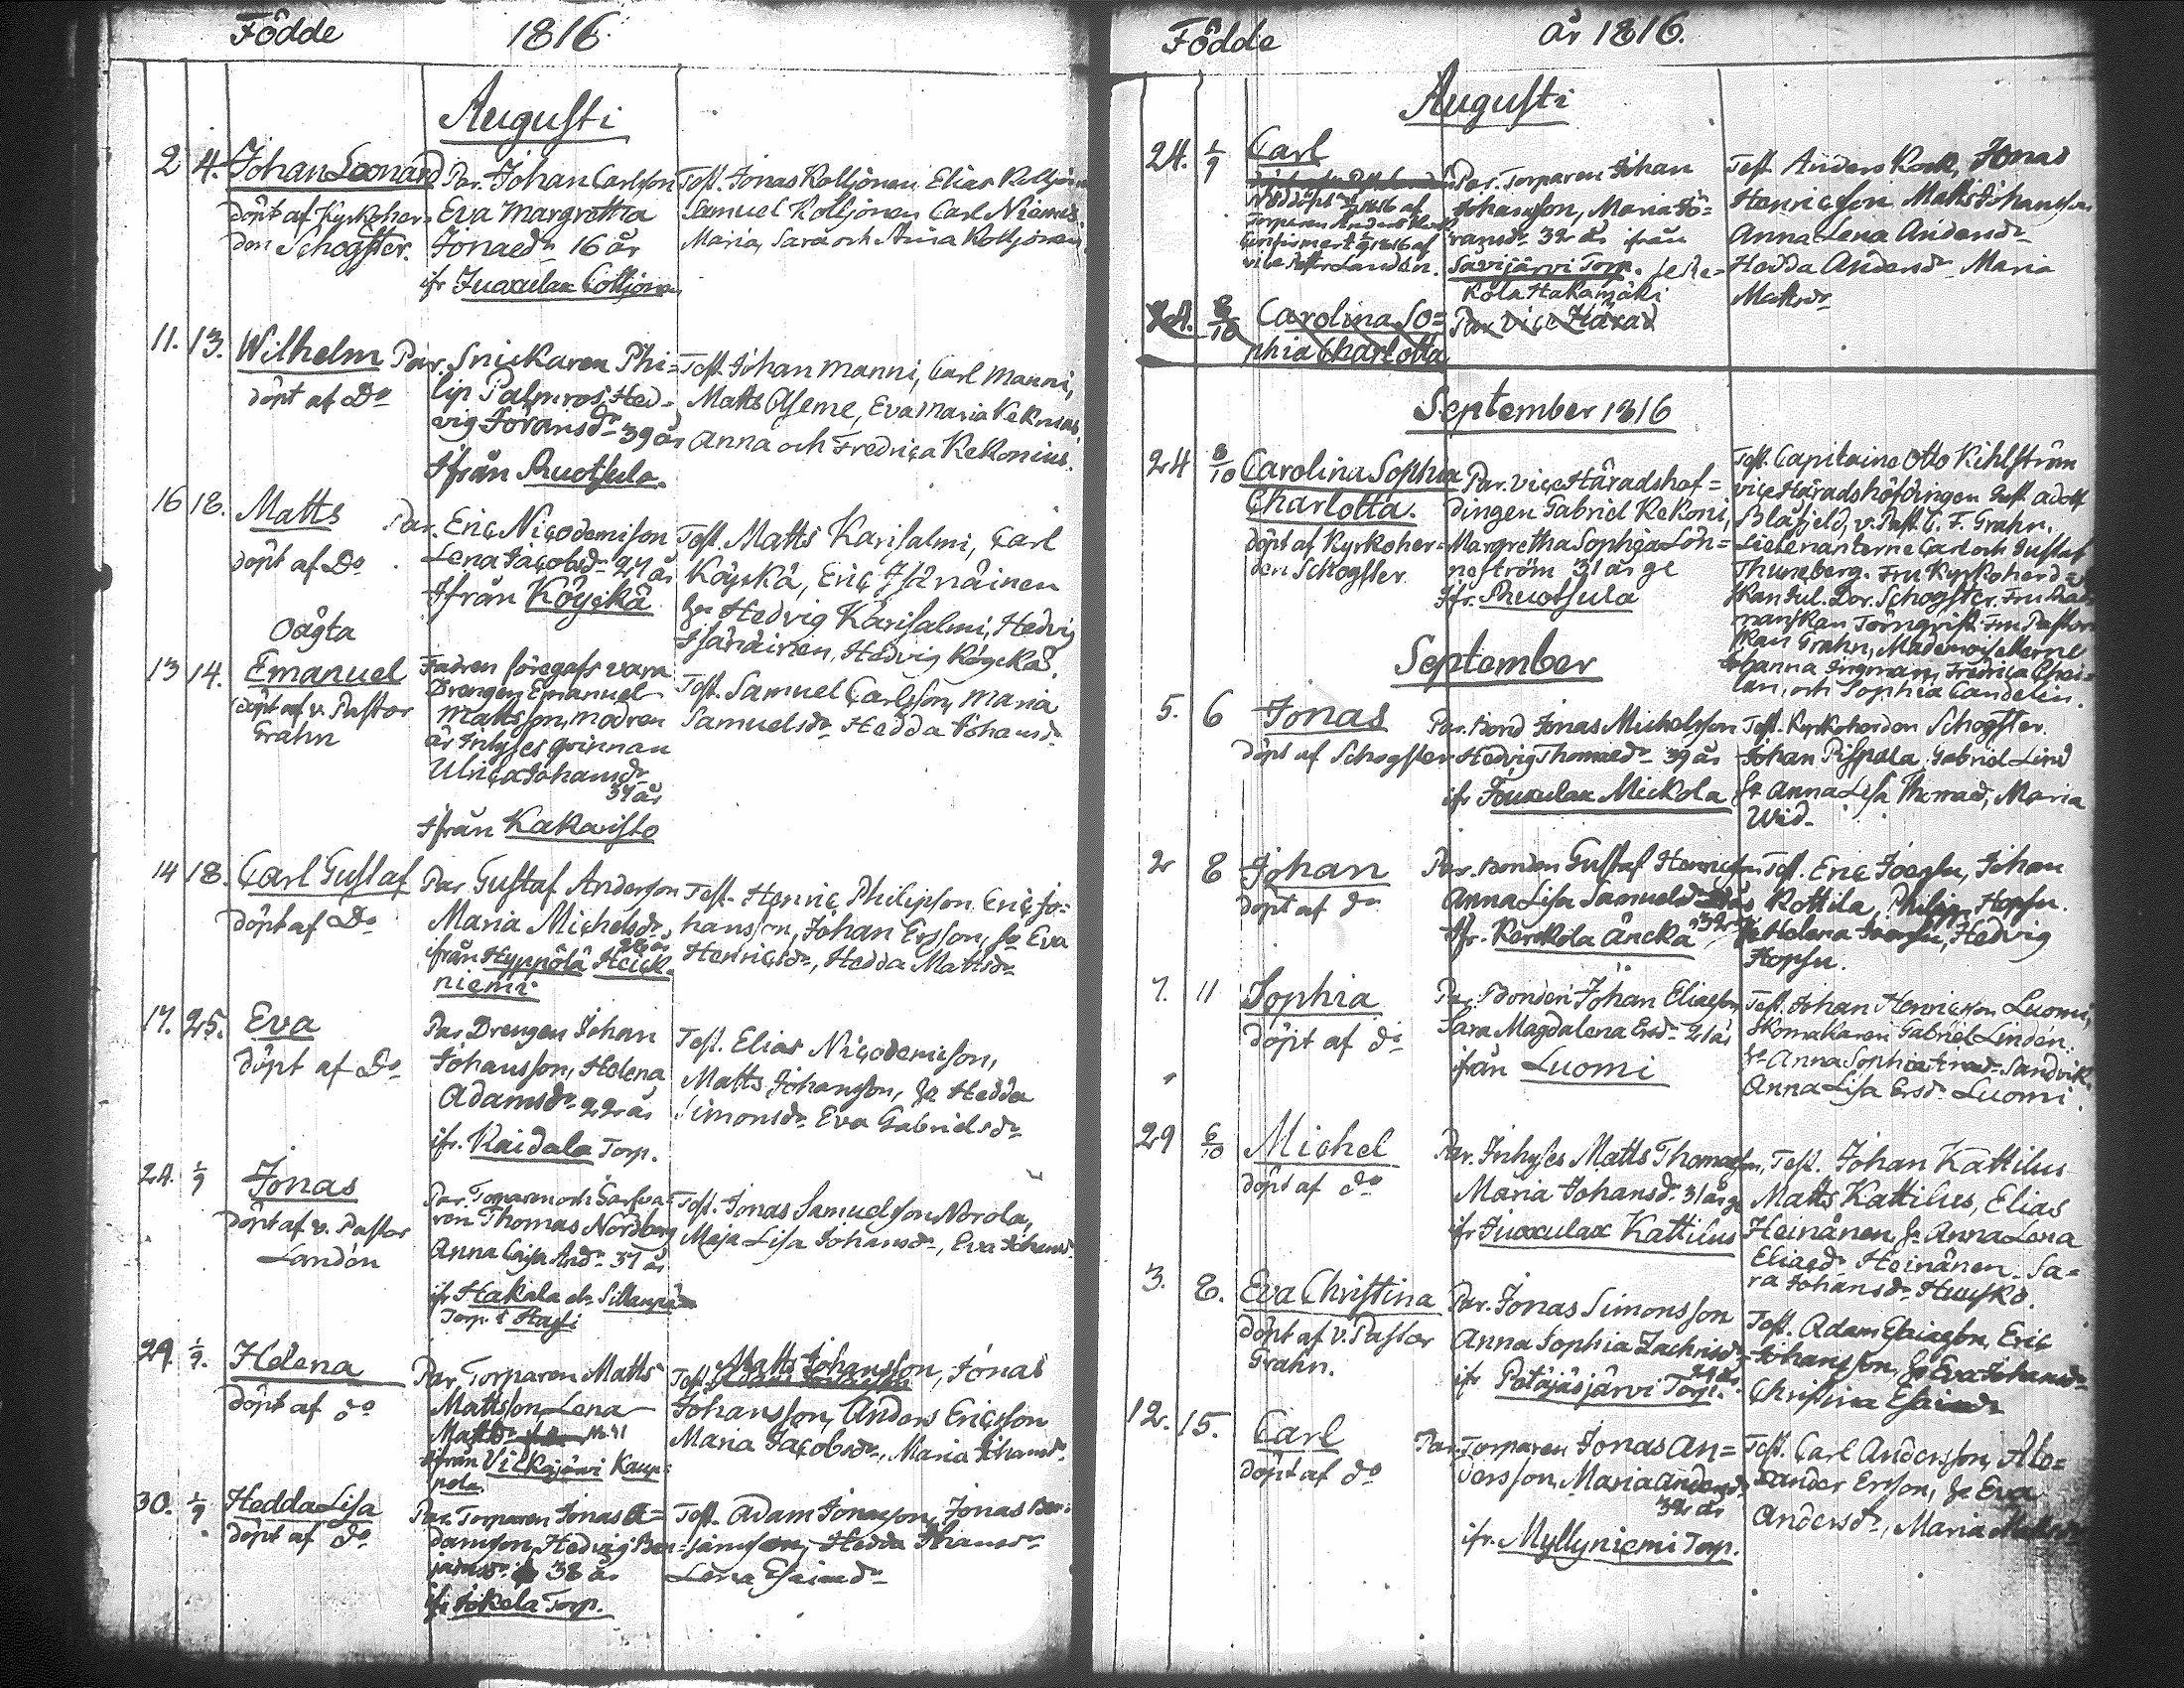 Födde 1816.
Augusti
2 4. Johan Leonard
döpt af Kyrkoher=
den Schogster.
Par. Johan Carlsson
Eva Margretha
Jonaed:r 16 år
ifr Juoxulax Colljonen
Test. Jonas Kolljonen Elias Kolljonen
Samuel Kolljonen Carl Niemes
Maria, Sara och Stina Kolljonen
11. 13. Wilhelm
döpt af D:o
Par. Snickaren Phi=
lip Palmros, Hed=
vig Joransd:r 39 år
Ifrån Ruotsula.
Test. Johan Manni, Carl Manni,
Matts Aseme, Eva Maria
Anna och Fredrica Kekonius.
16 18. Matts
döpt af D:o
Par. Eric Nicodemison
Lena Jacobsd:r 27 år
Ifrån Köyckä
Test. Matts Karisalmi, Carl
Köyckä, Eric Isänäinen
h:r Hedvig Karisalmi, Hedvig
Isänäinen, Hedvig Köyckä.
Oägta
13 14. Emanuel
döpt af v. Pastor
Grahn
Fadren föregafs vara
Drengen Emanuel
Mattsson, modren
är Inhyses qvinnan
Ulrica Johansd:r
37 år
Ifrån Kakaristo
Test. Samuel Carlsson, Maria
Samuelsd:r Hedda Johansd:r
14 18. Carl Gustaf
döpt af D:o
Par Gustaf Anderson
Maria Michelsd:r
26 år
ifrån Hyppölä Heick=
niemi
Test. Henric Philipson Eric Jo=
hansson, Johan Ersson, h:r Eva
Henricsd:r, Hedda Mattsd:r
17. 25. Eva
döpt af D:o
Par Drengen Johan
Johansson, Helena
Adamsd:r 22 år
ifr. Raidala Torp.
Test. Elias Nicodemison,
Matts Johansson, h:r Hedda
Simonsd:r Eva Gabrielsd:r
24. 1/9 Jonas
döpt af v. Pastor
Landén
Par. Torparen och Garfva=
ren Thomas Nordberg
Anna Caisa And:r 37 år
ifr Hakala el:r
Torp.
Test. Jonas Samuelson Norola,
Maja Lisa Johansd:r, Eva Johansd:r
29. 1/9. Helena
döpt af d:o
Par Torparen Matts
Mattsson, Lena
Mattsd:r
ifrån Vilkajärvi Kaup=
pola.
Matts Johansson, Jonas
Test.
Johansson, Anders Ericsson
Maria Jacobsd:r, Maria Johansd:r
30. 1/9 Hedda Lisa
döpt af d:o
Par. Torparen Jonas A=
damson, Hedvig Ben=
jamsd:r 38 år
ifr Jokela Torp.
Test. Adam Jonasson, Jonas Ben=
jamson, Hedda Thomasd:r
Lena Esaiaed:r
Födde år 1816.
Augusti
24. 1/9 Carl
Nöddöpt 1816 af
Torparen Anders Kock
Confirmert 1/9 1816 af
vice Pastor Landén.
Par. Torparen Johan
Johansson, Maria Jö=
ransd:r 32 år ifrån
Savijärvi Torp.
Kola Hakamäki
Test Anders Kock, Jonas
Henricsson, Matts Johansson
Anna Lena Andersd:r
Hedda Andersd:r Maria
Mattsd:r
24. 8/10 Carolina So=
phia Charlotta
Par vice Härad
September 1816
24 8/10 Carolina Sophia
Charlotta.
döpt af Kyrkoher=
den Schogster
Par. vice Häradshöf=
dingen Gabriel Kekoni,
Margretha Sophia Lön=
neström 31 år ge
ifr. Ruotsula
Test. Capitaine Otto Kihlström
vice Häradshöfdingen Gust. Adolf
Blåfjeld, v. Past. C. F. Grahn.
Lieutenanterne Carl och Gustaf
Thuneberg. Fru Kyrkoherd=
skan Jul. Dor. Schogster, Fru
manskan Törnqvist Fru Pastor
skan Grahn, Mademoisellerne
Johanna Ingman, Fredrica
och Sophia Candelin.
September
5. 6 Jonas
döpt af Schogster
Par. Bond Jonas Michelsson
Hedvig Thomaed:r 39 år
ifr Jouxulax Mickola
Test. Kyrkoherden Schogster
Johan Pispala, Gabriel Lind
h:r Anna Lisa Thomaed:r, Maria
Wid
2 8 Johan
döpt af d:o
Par. Bonden Gustaf Henricsson
Anna Lisa Samuelsd:r
32
ifr. Kerckola Ancka
Test. Eric Joensu, Johan
Kottila, Philip Hopsu.
h:r Helena Joensu, Hedvig
Hopsu.
7. 11 Sophia
döpt af d:o
Par. Bonden Johan Eliaeson
Sara Magdalena Ersd:r 21 år
ifrån Luomi
Test. Johan Henricsson Luomi,
Skomakaren Gabriel Lindén.
h:r Anna Sophia Sandvik,
Anna Lisa Ersd:r Luomi
29 6/10 Michel
döpt af d:o
Par. Inhyses Matts Thomasson,
Maria Johansd:r 31 år ge
ifr Juoxulax Kattilus
Test. Johan Kattilus
Matts Kattilus, Elias
Heinänen, h:r Anna Lena
Eliaed:r Heinänen. Sa=
ra Johansd:r Huusko.
3. 8. Eva Christina
döpt af v. Pastor
Grahn.
Par. Jonas Simonsson
Anna Sophia Zachrisd:r
ifr Pötäjäsjärvi Torp.
Test. Adam Esaiaeson, Eric
Johansson, h:r Eva Johansd:r
Christina Esaiaed:r
12. 15. Carl
döpt af d:o
Par. Torparen Jonas An=
dersson, Maria Andersd:r
32 år
ifr. Myllyniemi Torp.
Test. Carl Andersson, Ale=
xander Ersson, h:r Eva
Andersd:r, Maria